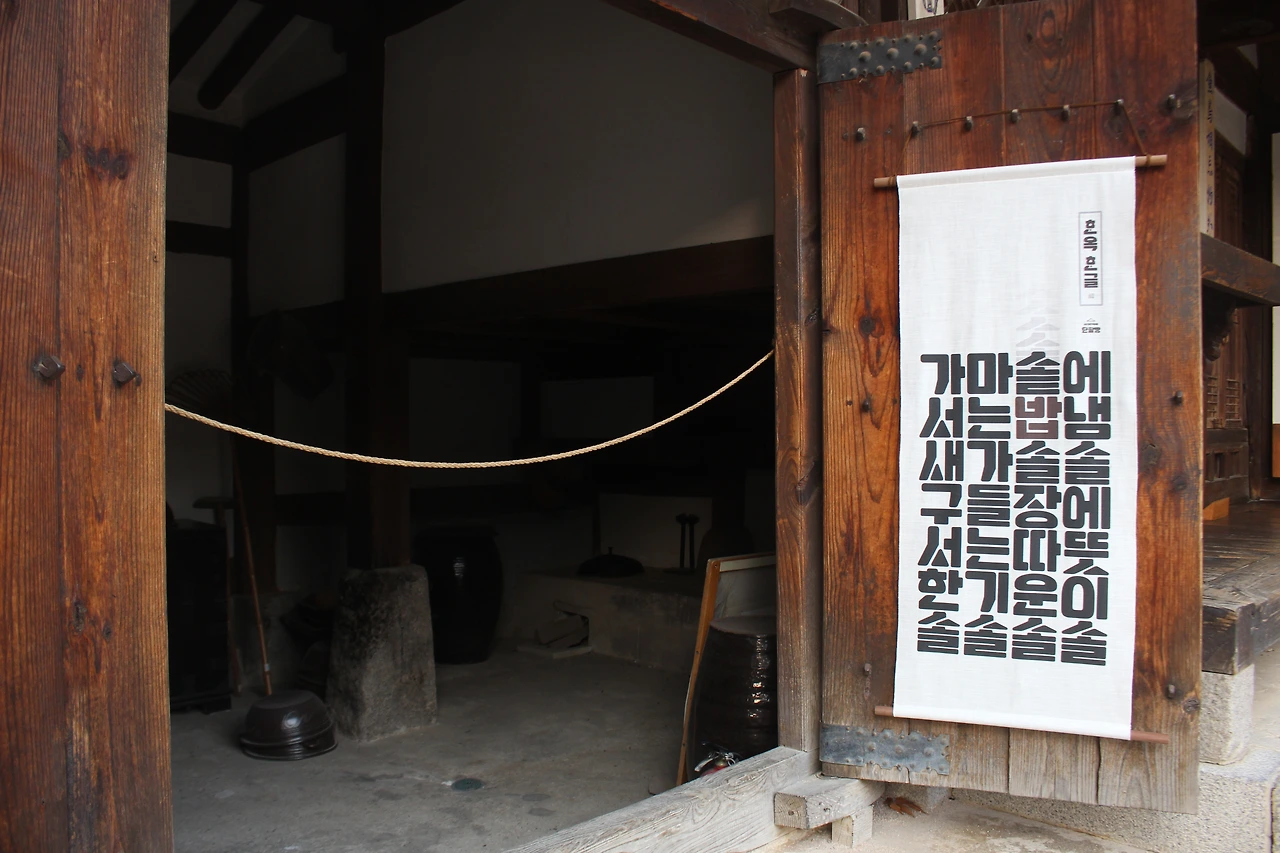 한옥 한글
가마솥에
서는밥냄
새가솔솔
구들장에
서는따뜻
한기운이
솔솔솔솔